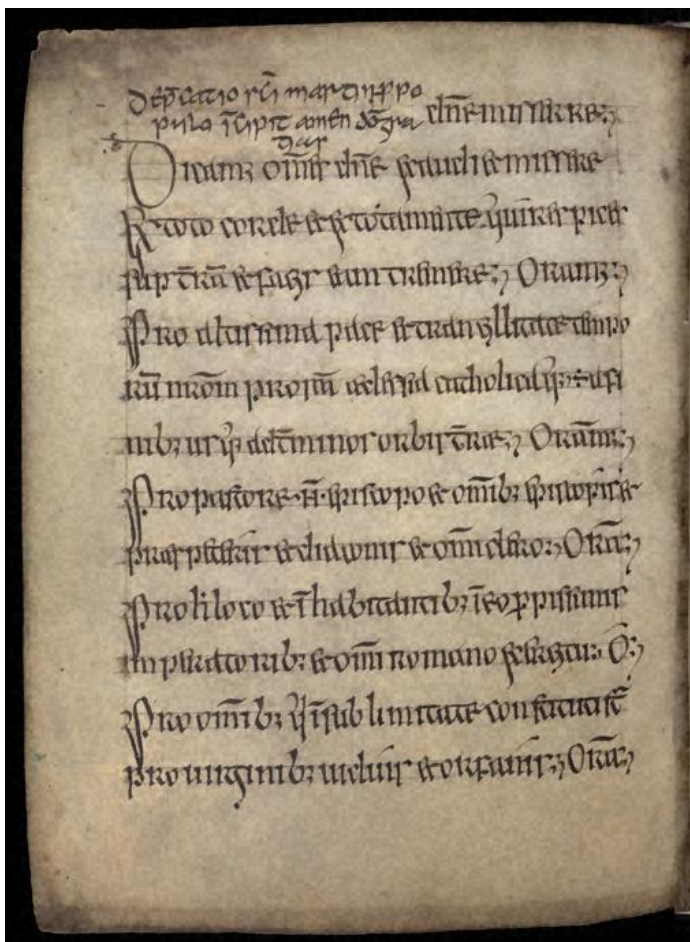 depcatio sci martini p po
pulo icipit amen do gra dñe miserere
tias
Dicamꝫ oms dñe exaudi et miserere
Ex toto corde et ex tota mente qui respicis
sup trā et facis eam tremere Oramꝫ
Pro altissima pace et tranqllitate tempo
rū nrōm pro scā aeclesia catholica q̄ ÷ a fi
nibꝫ usq ad tminos orbis trae Oramꝫ
Pro pastore ·n̄· episcopo et omībꝫ episcopis et
praespeteris et diaconis et omni clero Orā
Pro h loco et īhabitantibꝫ ī eo p piissimis
imperatoribꝫ et omī romano exercitu O
Pro omībꝫ q ī sublimitate constituti st
pro uirginibꝫ uiduis et orfanis Orā